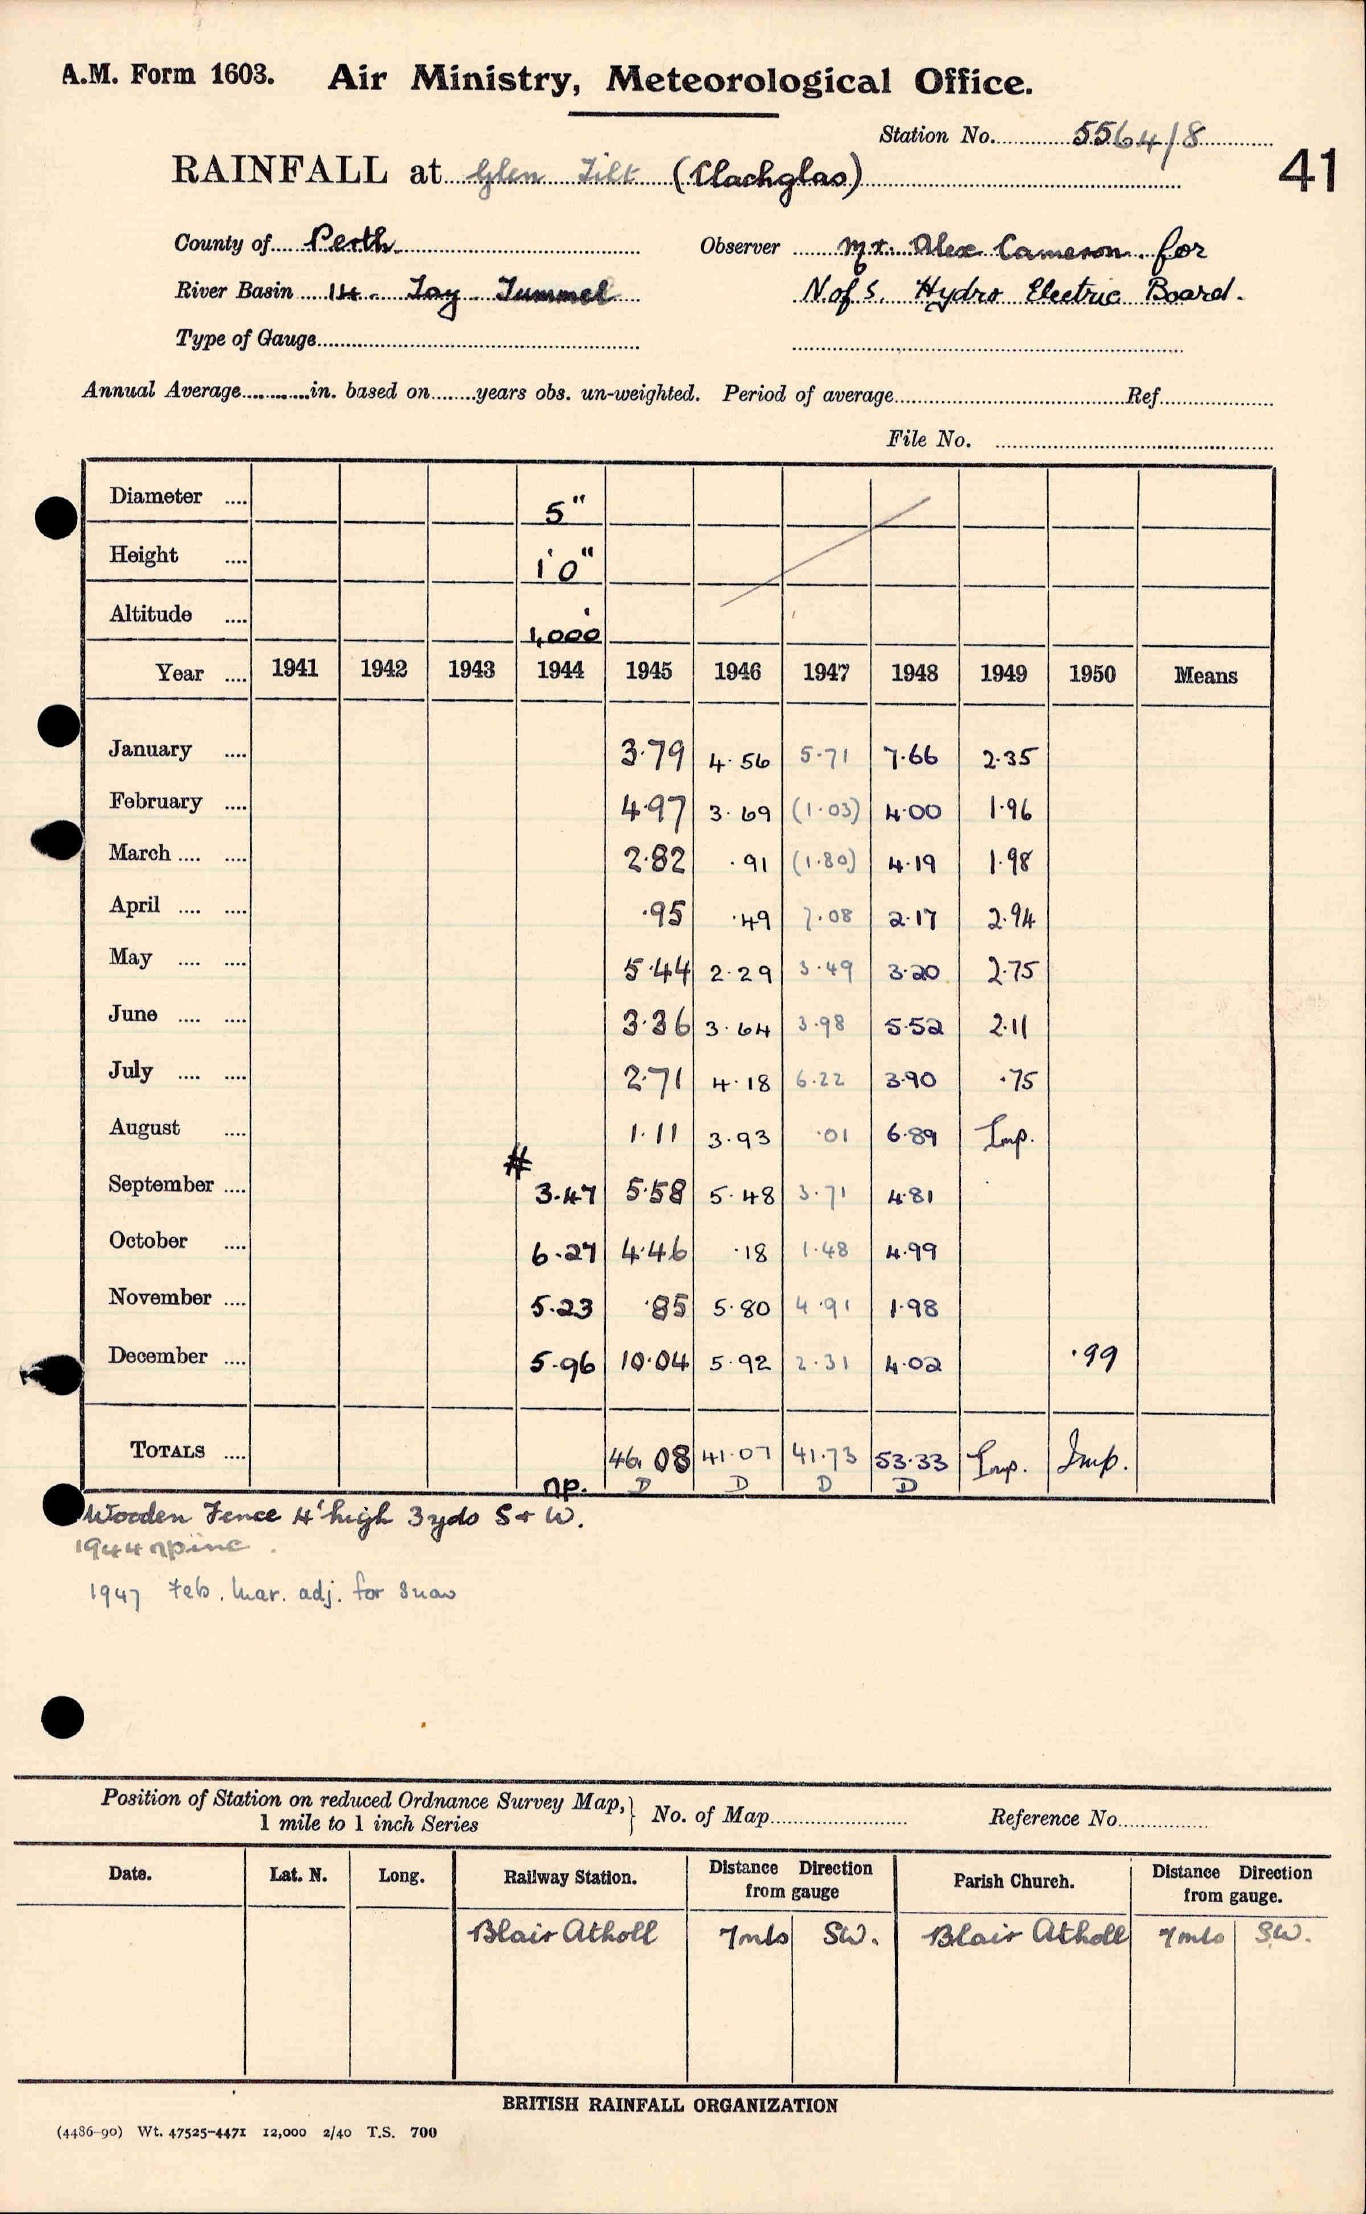 A.M. Form 1603. Air Ministry, Meteorological Office.
Station No. 5564/8
41
RAINFALL at Glen Tilt (Clachglas)
County of Perth Observer Mr. Alex Cameron. for
River Basin 14. Tay Tummel N. of S. Hydro Electric Board.
Type of Gauge
Annual Average in. based on years obs. un-weighted. Period of average Ref
File No.
Diameter .... 5"
Height .... 1'0"
Altitude .... 1,000'
Year .... 1941 1942 1943 1944 1945 1946 1947 1948 1949 1950 Means
January .... 3.79 4.56 5.71 7.66 2.35
February .... 4.97 3.69 (1.03) 4.00 1.96
March .... .... 2.82 .91 (1.80) 4.19 1.98
April .... .... .95 .49 7.08 2.17 2.94
May .... .... 5.44 2.29 3.49 3.20 2.75
June .... .... 3.36 3.64 3.98 5.52 2.11
July .... .... 2.71 4.18 6.22 3.90 .75
August .... 1.11 3.93 .01 6.89 Imp.
September .... # 3.47 5.58 5.48 3.71 4.81
October .... 6.27 4.46 .18 1.48 4.99
November .... 5.23 .85 5.80 4.91 1.98
December .... 5.96 10.04 5.92 2.31 4.02 .99
TOTALS .... 46.08 41.07 41.73 53.33 Imp. Imp.
np. D D D D
Wooden Fence 4' high 3 yds S + W.
1944 np inc.
1947 Feb. Mar. adj. for snow
Position of Station on reduced Ordnance Survey Map,} No. of Map Reference No
1 mile to 1 inch Series
Date. Lat. N. Long. Railway Station. Distance Direction from gauge Parish Church. Distance Direction from gauge.
Blair Atholl 7 mls SW. Blair Atholl 7 mls S.W.
BRITISH RAINFALL ORGANIZATION
(4486-90) Wt. 47525-4471 12,000 2/40 T.S. 700